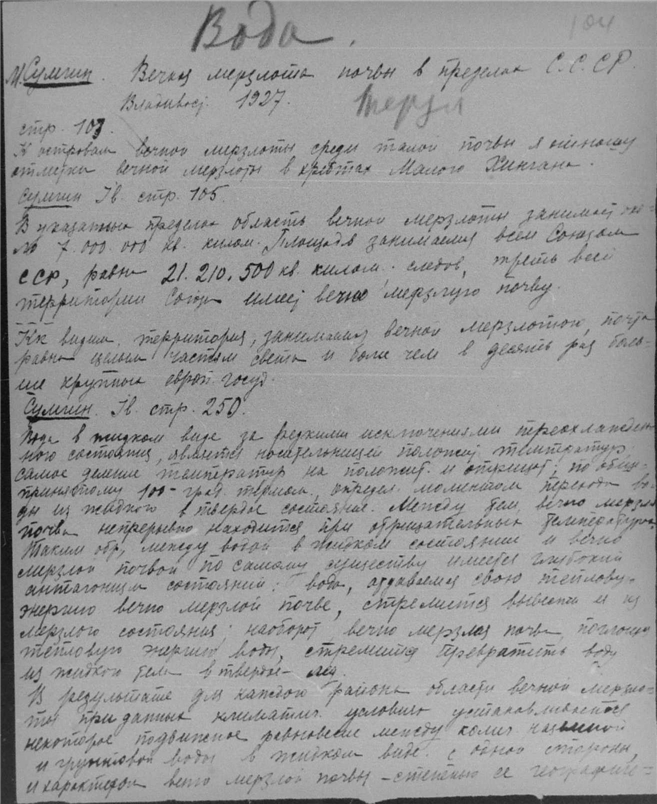 Вода.
104
М. Сумгин. Вечная мерзлота почвы в пределах С.С.СР.
Владивос. 1927.
Мерзл
стр. 103.
К островам вечной мерзлоты среди талой почвы я отношу
отметки вечной мерзлоты в хребтах Малого Хингана.
Сумгин Iв. стр. 105.
В указатных пределах область вечной мерзлоты занимает око-
ло 7.000.000 кв. килом. Площадь занимаемая всем Союзом
ССР, равна 21.210.500 кв. килом. следов, треть всей
территории Союза имеет вечно мерзлую почву.
Кк видим, территория, занимаемая вечной мерзлотою, почти
равна целым частям света и более чем в десять раз боль-
ше крупных европ. госуд.
Сумгин. Iв. стр. 250.
Вода в жидком виде за редкими исключениями переохлажден-
ного состояния, является носительницей положит температур.
самое деление температур на положит. и отрицат; по обще-
принятому 100-град. термом., определ. моментом перехода во-
ды из жидкого в твердое состояние. Между тем, вечно мерзлая
почва непрерывно находится при отрицательных температурах.
Таким обр, между водой в жидком состоянии и вечно
мерзлой почвой по самому существу имеется глубокий
антагонизм состояний: вода, отдавая свою теплову-
энергию вечно мерзлой почве, стремится вывести ее из
мерзлого состояния; наоборот вечно мерзлая почва, поглощая
тепловую энергию воды, стремится превратить воду
из жидкой тела в твердое - лед.
В результате для каждого района области вечной мерзло-
ты при данных климатич. условиях устанавливается
некоторое подвижное равновесие между колич наземной
и грунтовой воды в жидком виде с одной стороны,
и характером вечно мерзлой почвы - степенью ее географиче-